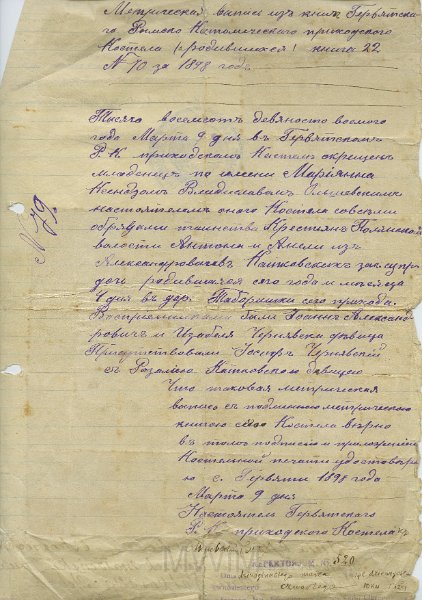 Метрическая выпись изъ книгъ Гервятска-
го Римско Католическаго приходскаго
Костела (родившихся) книга 22
№ 70 за 1898 годъ
Тысяча восемсотъ девяносто восьмого
года Марта 9 дня въ Гервятскомъ
Р. К. приходскомъ Костелѣ окрещенъ
младенецъ по имени Марьянна
Ксендзомъ Владиславомъ
настоятелемъ оного Костела со всѣми
обрядами таинства Крестьянъ Полянской
волости Антона и Анели изъ
Александровичевъ законн
дочь родившаяся сего года и мѣсяца
4 дня въ дер. Таборишки сего прихода.
Восприемниками были Іоаннъ Александ-
ровичъ и Изабеля Чернявска дѣвица
Присутствовали Іосифъ Чернявскій
съ Розалією дѣвицею
Что таковая метрическая
выпись съ подлинною метрическою
книгою сего Костела вѣрно
въ томъ подписью и приложеніемъ
Костельной печати удостовѣряю
с. Гервяты 1898 года
Марта 9 дня
Настоятель Гервятского
Р. К. приходского Костела
№ 79
№ 520